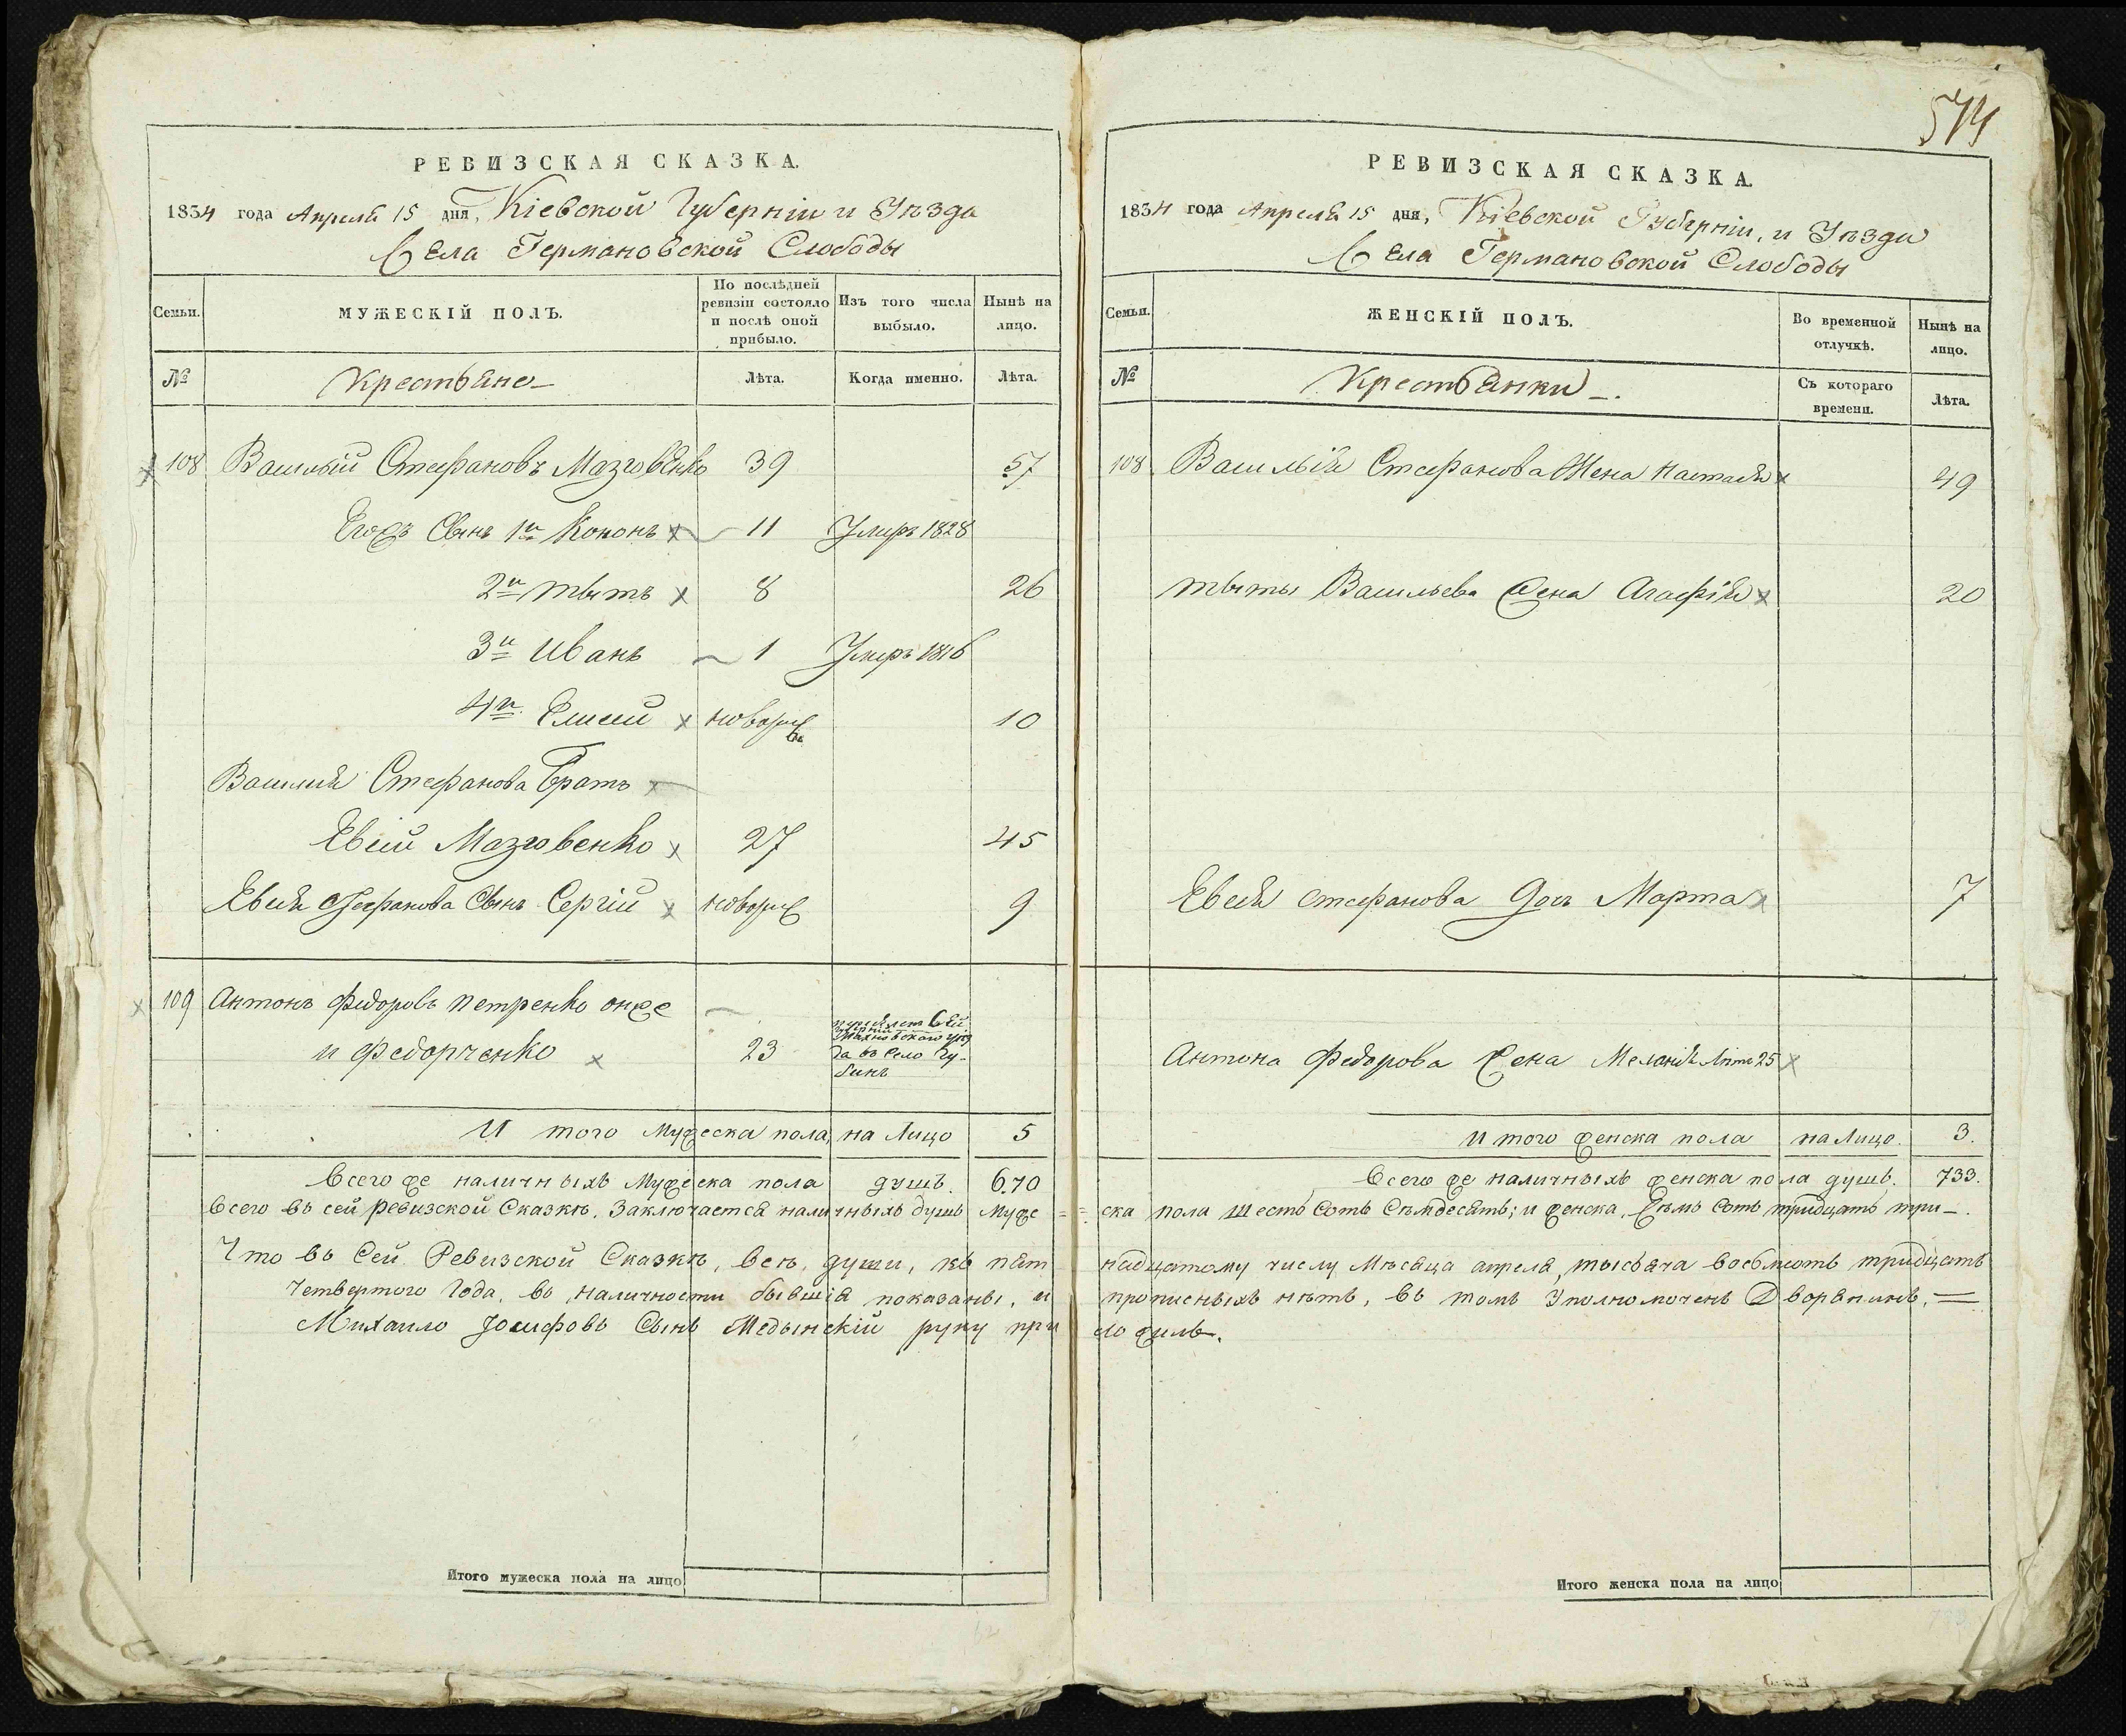 574
РЕВИЗСКАЯ СКАЗКА.
1834 года Апреля 15 дня, Кіевской Губерніи и Уѣзда
Села Германовской Слободы
Семьи.
МУЖЕСКІЙ ПОЛЪ.
По послѣдней ревизіи состояло и послѣ оной прибыло.
Изъ того числа выбыло.
Нынѣ на лицо.
№
Крестьяне
Лѣта.
Когда именно.
Лѣта.
108 Василій Стефановъ Мазговенко 39 57
Егожъ Сынъ 1й Кононъ 11 Умеръ 1828
2й Тытъ 8 26
3й Иванъ 1 Умеръ 1816
4й Елисей новорож 10
Василия Стефанова Братъ
Евсій Мазговенко 27 45
Евсія Стефанова Сынъ Сергій новорож 9
109 Антонъ Федоровъ Петренко онже
и Федорченко 23
Махновского уез
да въ Село Гу-
бинъ
И того мужеска пола, на Лицо 5
Всего же наличныхъ Мужеска пола душъ. 670
Всего въ сей ревизской Сказкѣ, Заключается наличныхъ душъ Муже=
Что въ Сей Ревизской Сказкѣ, всѣ, души, къ пят
Четвертого Года, въ наличности бывшія показаны, и
Михаило Іосифовъ Сынъ Медынскій руку при
Итого мужеска пола на лицо
РЕВИЗСКАЯ СКАЗКА.
1834 года Апреля 15 дня, Кіевской Губерніи, и Уѣзда
Села Германовской Слободы
Семьи.
ЖЕНСКІЙ ПОЛЪ.
Во временной отлучкѣ.
Нынѣ на лицо.
№
Крестьянки.
Съ котораго времени.
Лѣта.
108 Василія Стефанова Жена Настася 49
Тыты Васильева Жена Агафія 20
Евсея Стефанова Дочь Марта 7
Антона Федорова Жена Меланія Лѣтъ 25
И того женска пола на Лицо. 3.
Всего же наличныхъ женска пола душъ. 733.
=ска пола шесть Сотъ Семдесятъ; и женска, Семь Сотъ тридцать три.
надцатому числу Мѣсяца апреля, тысяча восьмсотъ тридцать
прописныхъ нѣтъ, въ томъ Уполномоченъ Дворянинъ,=
ложилъ.
Итого женска пола на лицо